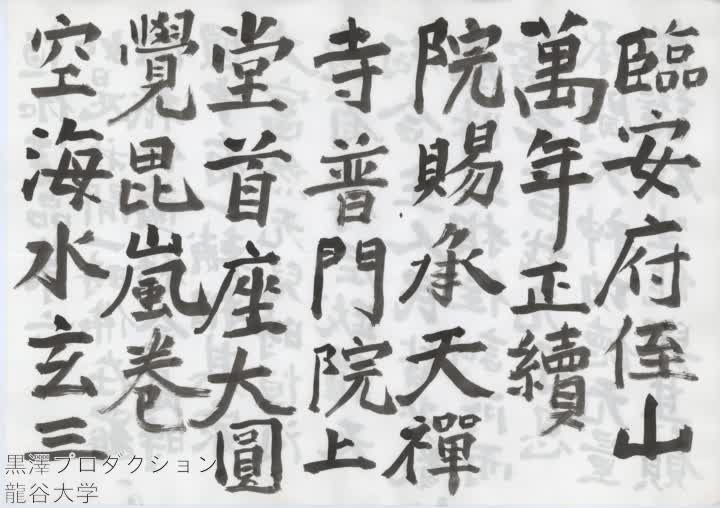 臨安府侄山
萬年正續
院賜承天禪
寺普門院上
堂首座大圓
覺毘嵐卷
空海水玄三
黒澤プロダクション
龍谷大学